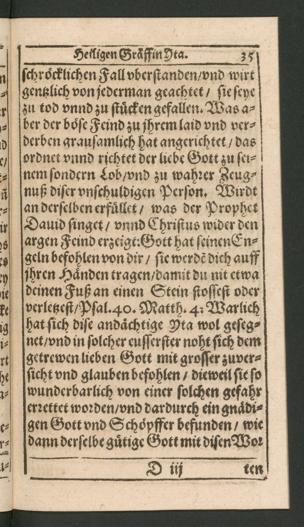 Heiligen Gräffin Yta. 35
schröcklichen Fall vberstanden/vnd wirt
gentzlich von jederman geachtet / sie seye
zu tod vnnd zu stücken gefallen. Was a-
ber der böse Feind zu jhrem laid vnd ver-
derben grausamlich hat angerichtet / das
ordnet vnnd richtet der liebe Gott zu sei-
nem sondern Lob/vnd zu wahrer Zeug-
nuß diser vnschuldigen Person. Wirdt
an derselben erfüllet / was der Prophet
Dauid singet / vnnd Christus wider den
argen Feind erzeigt: Gott hat seinen En-
geln befohlen von dir / sie werdē dich auff
jhren Händen tragen/damit du nit etwa
deinen Fuß an einen Stein stossest oder
verletzest/Psal. 40. Matth. 4: Warlich
hat sich dise andächtige Yta wol geseg-
net/vnd in solcher eusserster noht sich dem
getrewen lieben Gott mit grosser zuver-
sicht vnd glauben befohlen / dieweil sie so
wunderbarlich von einer solchen gefahr
errettet worden/vnd dardurch ein gnädi-
gen Gott vnd Schöpffer befunden / wie
dann derselbe gütige Gott mit disen Wor
D iij ten